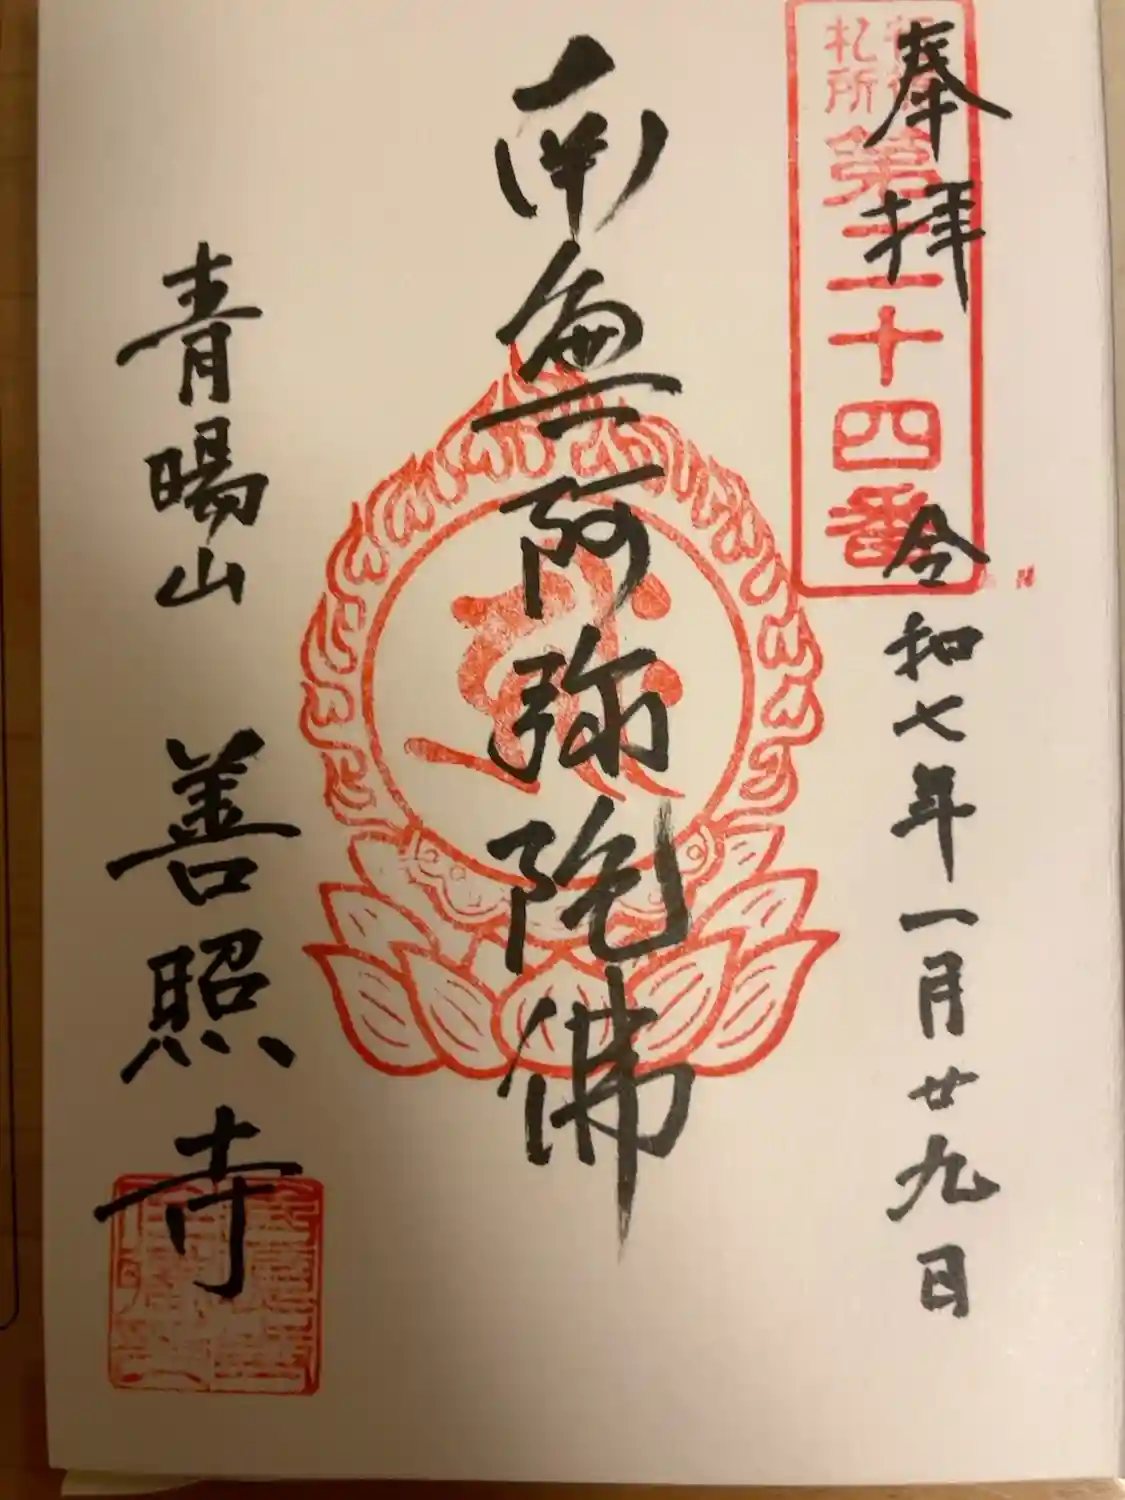 奉拝 令和七年一月廿九日
行徳
札所
第二十四番
南無阿弥陀佛
青暘山 善照寺